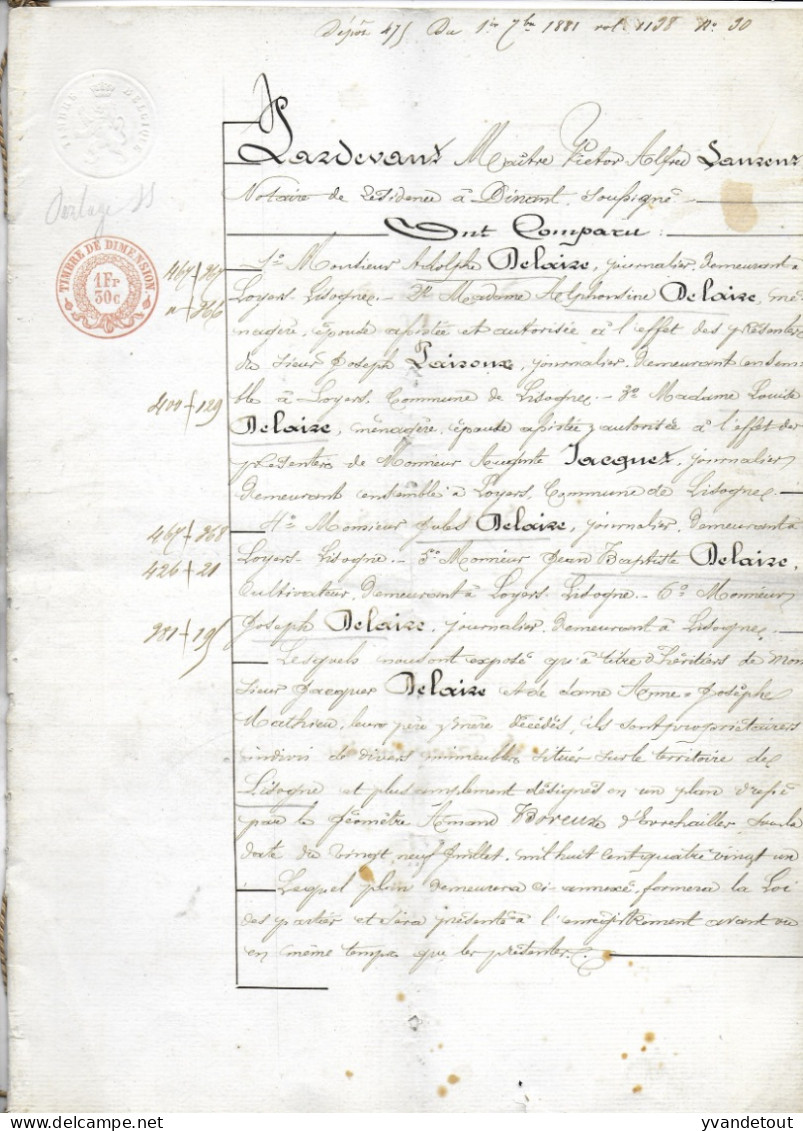 Dépôt 475 Du 1er 7bre 1881 vol. 1138 N° 30
TIMBRE BELGIQUE
Pardevant Maître Victor Alfred Laurent
Notaire de résidence à Dinant, soussigné
Ont Comparu :
TIMBRE DE DIMENSION
1 Fr
30 c
1° Monsieur Adolphe Delaire, journalier, demeurant à
Loyers-Lisogne. – 2° Madame Alphonsine Delaire, mé-
nagère, épouse assistée et autorisée à l'effet des présentes
du sieur Joseph journalier, demeurant ensem-
409 + 129
ble à Loyers, Commune de Lisogne. – 3° Madame Louise
Delaire, ménagère, épouse assistée & autorisée à l'effet des
présentes de Monsieur Auguste Jacquet, journalier
demeurant ensemble à Loyers, Commune de Lisogne.
467 + 368
4° Monsieur Jules Delaire, journalier, demeurant à
426 + 21
Loyers-Lisogne. – 5° Monsieur Jean Baptiste Delaire,
Cultivateur, demeurant à Loyers-Lisogne. – 6° Monsieur
381 + 195
Joseph Delaire, journalier, demeurant à Lisogne.
Lesquels nous ont exposé qu'à titre d'héritiers de Mon
sieur Jacques Delaire et de dame Anne-Josèphe
Mathieu, leurs père & mère décédés, ils sont propriétaires
indivis de divers immeubles situés sur le territoire de
Lisogne et plus amplement désignés en un plan dressé
par le géomètre Armand Boreux d'Evrehailles sous la
date du vingt neuf Juillet mil huit cent quatre vingt un
Lequel plan demeurera ci-annexé, formera la Loi
des parties et sera présenté à l'enregistrement avant ou
en même temps que les présentes.
yvandetout